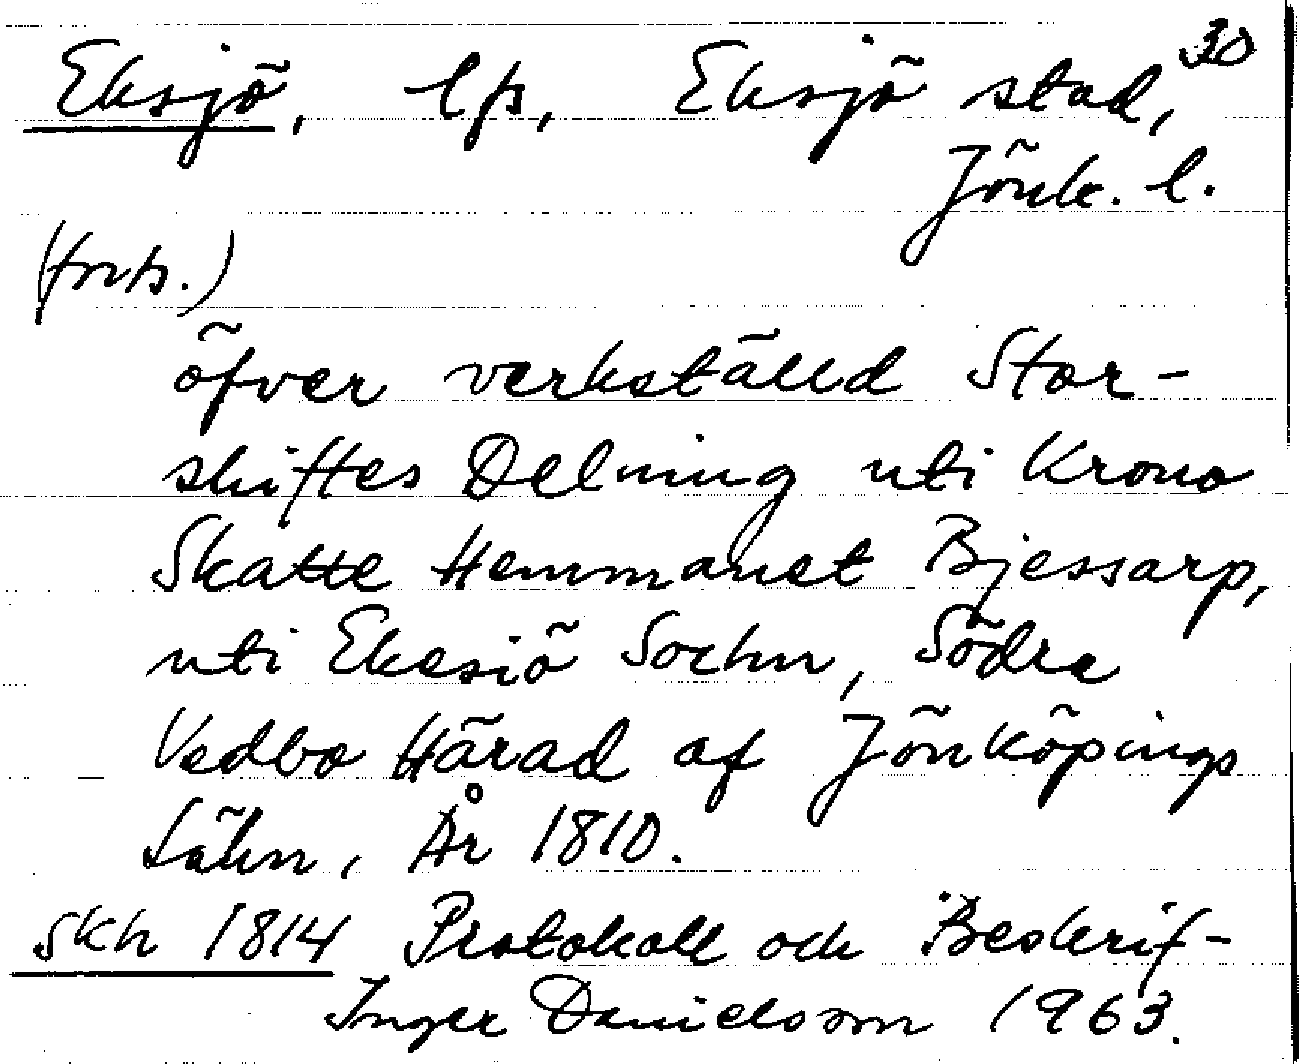 Eksjö, lfs, Eksjö stad, 30
Jönk. l.
(forts.)
öfver verkställd Stor-
skiftes Delning uti Krono
Skatte Hemmanet Bjessarp,
uti Ekesiö Sochn, Södre
Vedbo Härad af Jönköpings
Lähn, År 1810.
Skh 1814 Protokoll och Beskrif-
Inger Danielsson 1963.